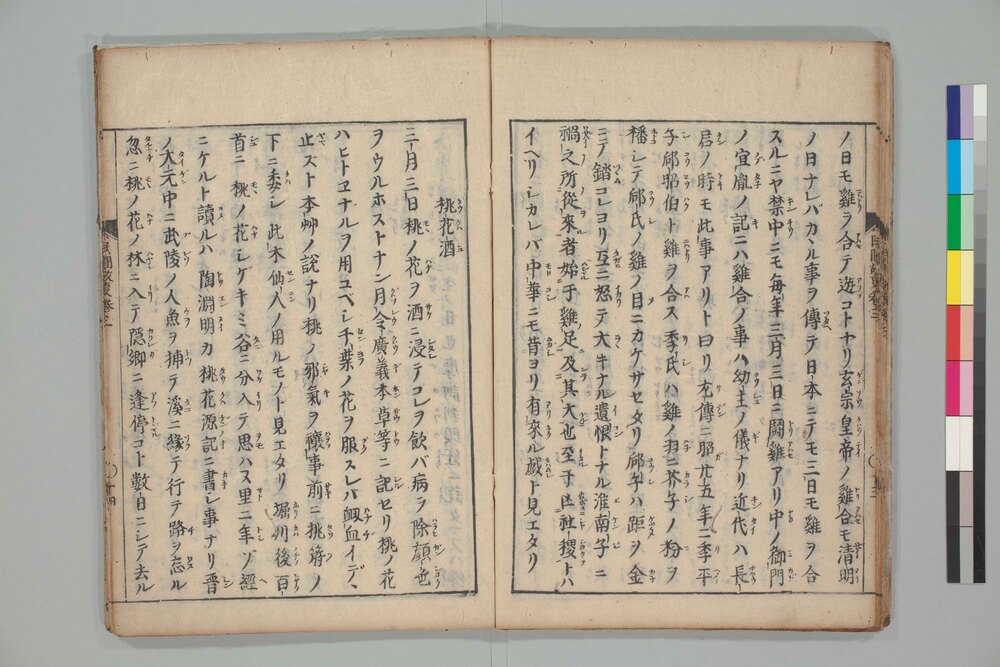 ノ日モ雞ヲ合テ遊コトヤリ玄宗皇帝ノ雞合モ清明
ノ日ナレバカヽル事ヲ傳テ日本ニテモ三日モ雞ヲ合
スルニヤ禁中ニモ毎年三月三日ニ鬪雞アリ中ノ御門
ノ宣胤ノ記ニハ雞合ノ事ハ幼主ノ儀ナリ近代ハ長
君ノ時モ此事アリト曰リ左傳ニ昭廿五年ニ季平
子郈昭伯ト雞ヲ合ス季氏ハ雞ノ羽ニ芥子ノ粉ヲ
播シテ郈氏ノ雞ノ目ニカケサセタリ郈牟ハ距ヲ金
ニテ銷コレヨリ互ニ怒テ大キナル遺恨トナル淮南子ニ
禍之所從來者始于雞足及其大也至于亡社稷トハ
イヘリシカレバ中華ニモ昔ヨリ有來ル戲ト見エタリ
桃花酒
三月三日桃ノ花ヲ酒ニ浸テコレヲ飲バ病ヲ除顔色
ヲウルホストナン月令廣義本草等ニ記セリ桃ノ花
ハヒトヱナルヲ用ユベシ千葉ノ花ヲ服スレバ衂血イデヽ
止ズト本艸ノ説ナリ桃ノ邪氣ヲ禳事前ニ桃符ノ
下ニ委シ此木仙人ノ用ルモノト見エタリ堀川後百
首ニ桃ノ花シゲキミ谷ニ分入テ思ハヌ里ニ年ゾ經
ニケルト讀ルハ陶淵明カ桃花源記ニ書シ事ナリ晋
ノ大元中ニ武陵ノ人魚ヲ捕テ溪ニ緣テ行テ路ヲ忘ル
忽ニ桃ノ花ノ林ニ入テ隠郷ニ逢停コト數日ニシテ去ル
民間故事卷三
十四